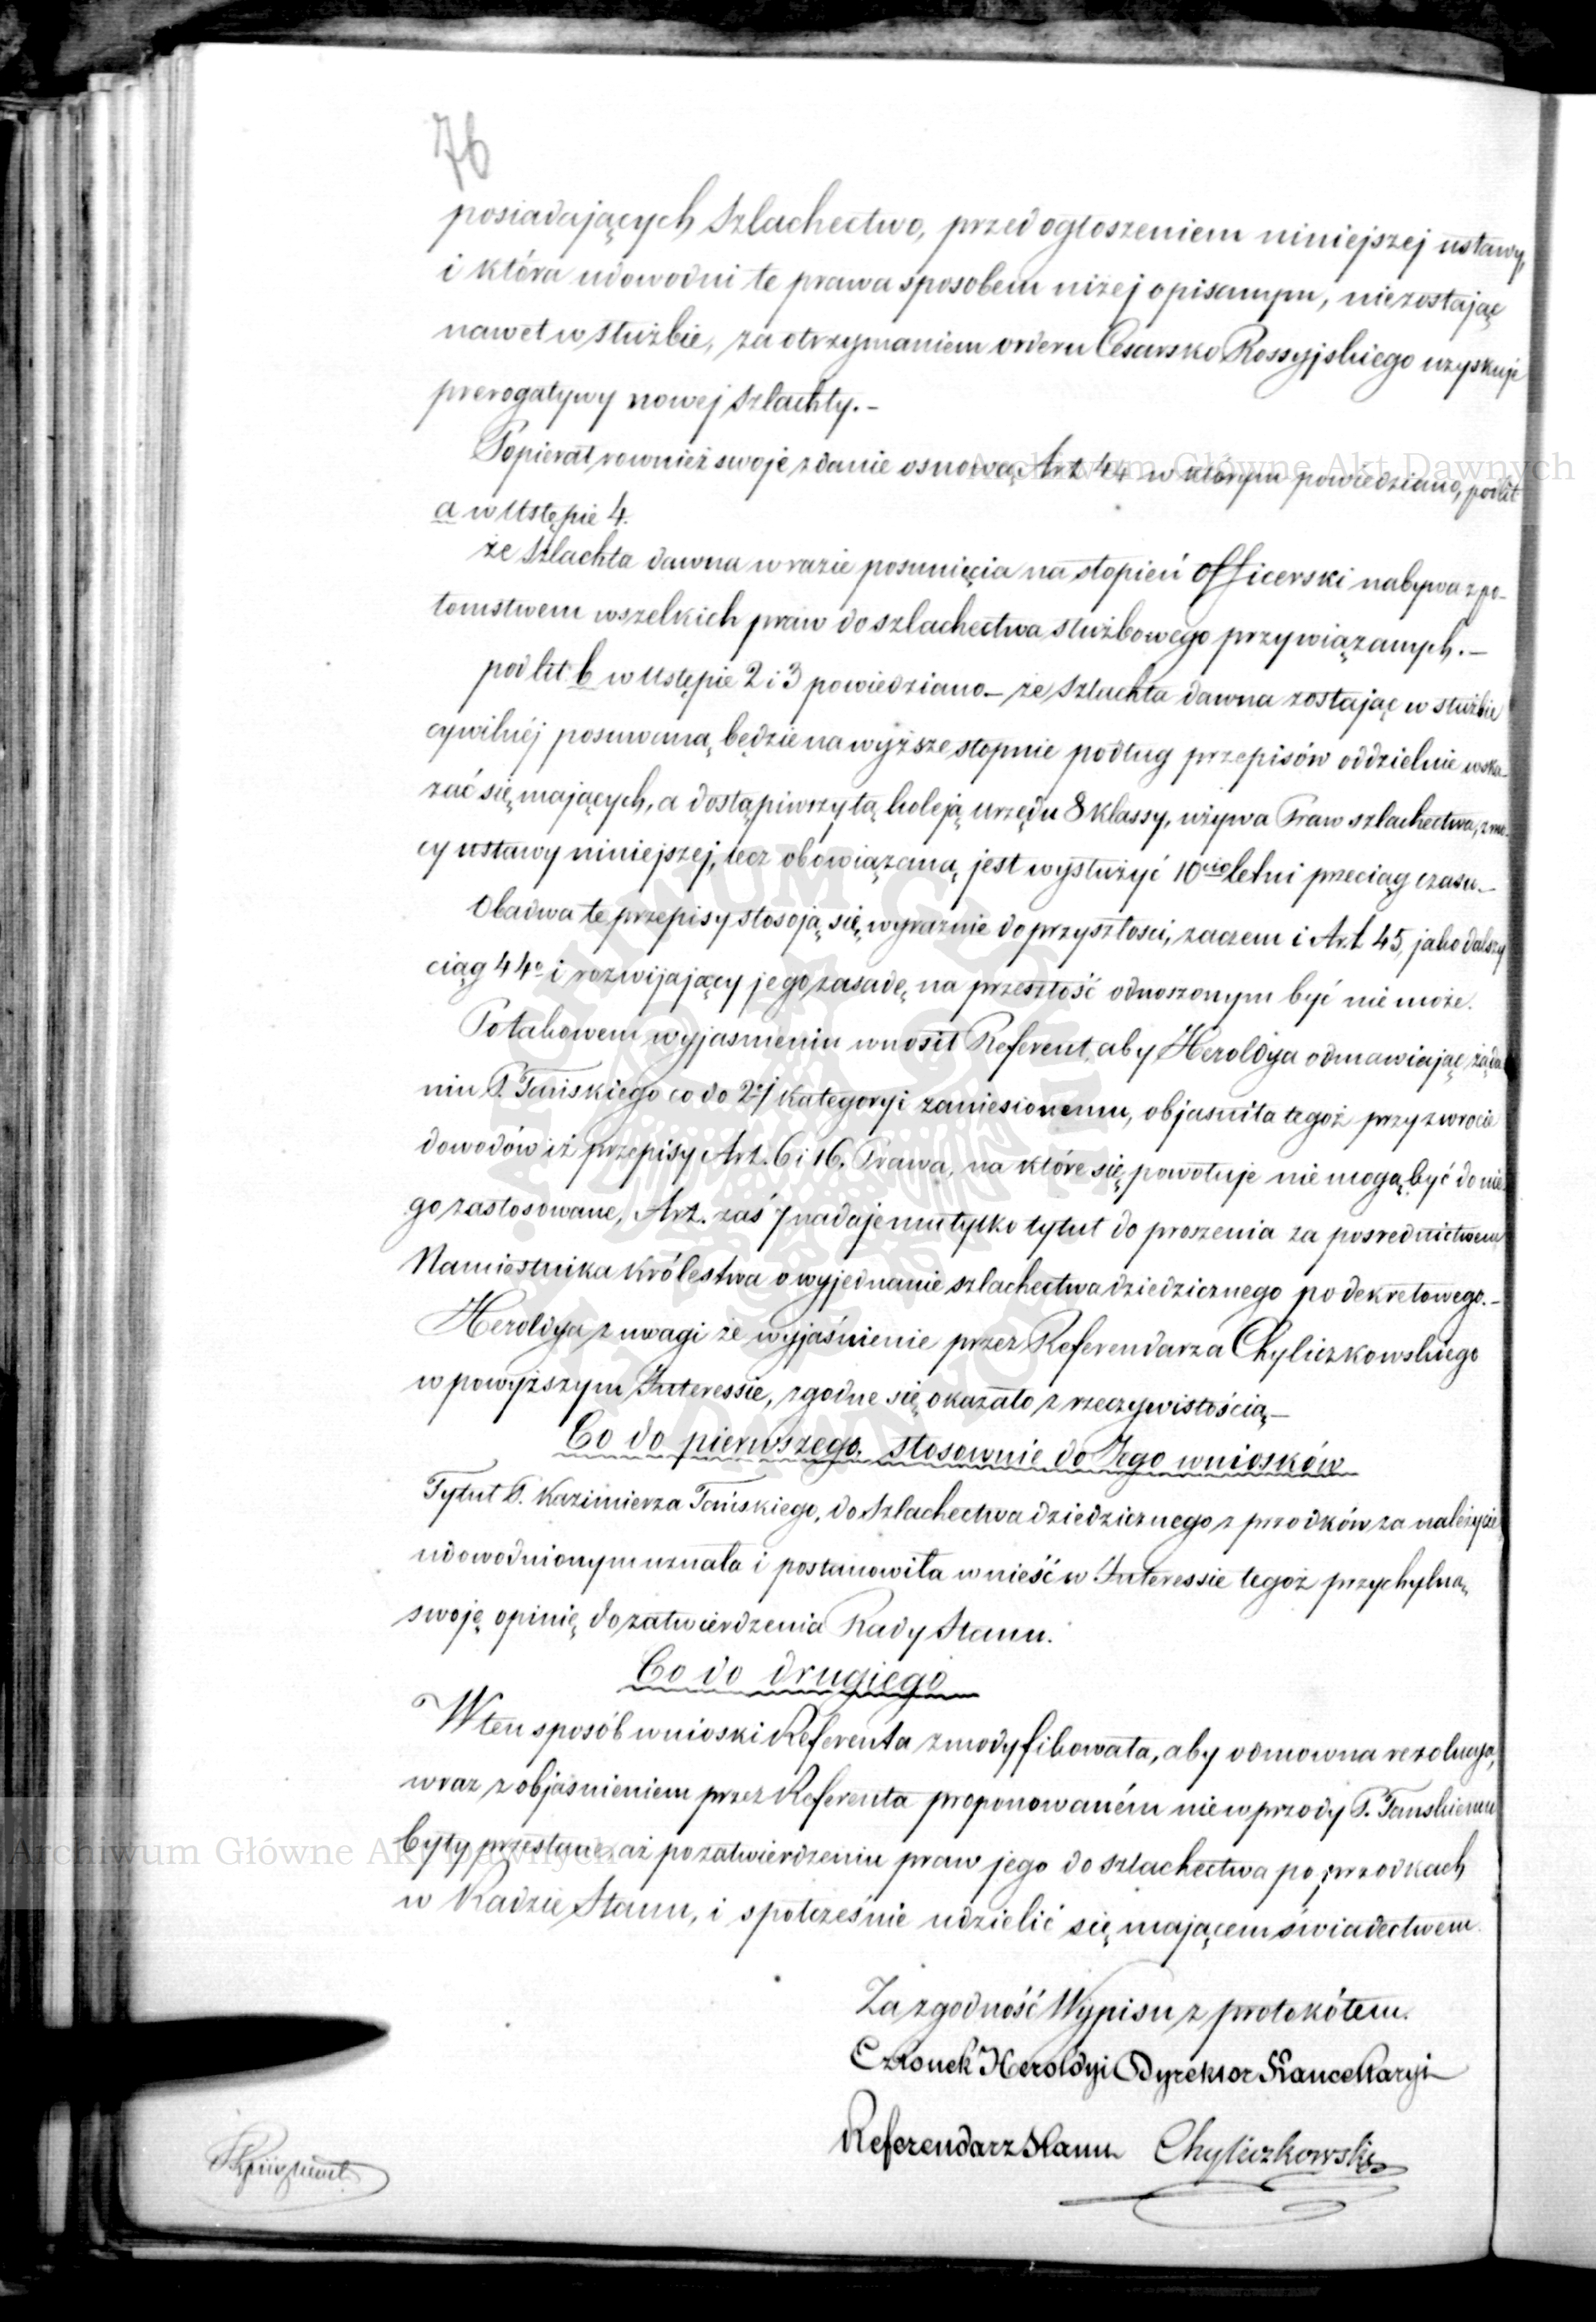 76
posiadających Szlachectwo, przed ogłoszeniem niniejszej ustawy,
i która udowodni te prawa sposobem niżej opisanym, niezostając
nawet w służbie, za otrzymaniem orderu Cesarsko Rossyjskiego uzyskuje
prerogatywy nowej Szlachty.–
Popierał rownież swoje zdanie osnową Art. 44 w którym powiedziano, pod lit
a w Ustępie 4.
że Szlachta dawna w razie posunięcia na stopień officerski nabywa z po-
tomstwem wszelkich praw do szlachectwa służbowego przywiązanych.–
pod lit. b w Ustępie 2 i 3 powiedziano – że Szlachta dawna zostając w służbie
cywilnéj posuwaną będzie na wyższe stopnie podług przepisów oddzielnie wska-
zać się mających, a dostąpiwszy tą koleją urzędu 8 klassy, używa Praw szlachectwa, z mo-
cy ustawy niniejszej, lecz obowiązaną jest wysłużyć 10cio letni przeciąg czasu.–
Obadwa te przepisy stosoją się wyraznie do przyszłosci, zaczem i Art. 45, jako dalszy
ciąg 44o i rozwijający jego zasadę na przeszłość odnoszonym być nie może.
Po takowem wyjasnieniu wnosił Referent, aby Heroldya odmawiając żąda
niu P. Tańskiego co do 2ej kategoryi zaniesionemu, objasniła tegoż przy zwrocie
dowodów iż przepisy Art. 6 i 16. Prawa, na które się powołuje nie mogą być do nie-
go zastosowane, Art. zaś 7 nadaje mu tylko tytuł do proszenia za posrednictwem
Namiestnika Królestwa o wyjednanie szlachectwa dziedzicznego po dekretowego.–
Heroldya z uwagi że wyjaśnienie przez Referendarza Chyliczkowskiego
w powyższym Interessie, zgodne się okazało z rzeczywistością –
Co do pierwszego. stosownie do Jego wniosków
Tytuł P. Kazimierza Tańskiego, do Szlachectwa dziedzicznego z przodków za należycie
udowodnionym uznała i postanowiła wnieść w Interessie tegoż przychylną
swoję opinię do zatwierdzenia Rady Stanu.
Co do drugiego
W ten sposób wnioski Referenta zmodyfikowała, aby odmowna rezolucya,
wraz z objasnieniem przez Referenta proponowaném nie wprzody P. Tanskiemu
były przesłane, aż po zatwierdzeniu praw jego do szlachectwa po przodkach
w Radzie Stanu, i społcześnie udzielić się mającem świadectwem.
Za zgodność Wypisu z protokółem.
Członek Heroldyi Dyrektor Kancellaryi
Referendarz Stanu Chyliczkowski
Archiwum Główne Akt Dawnych
Archiwum Główne Akt Dawnych
ARCHIWUM GŁÓWNE AKT DAWNYCH